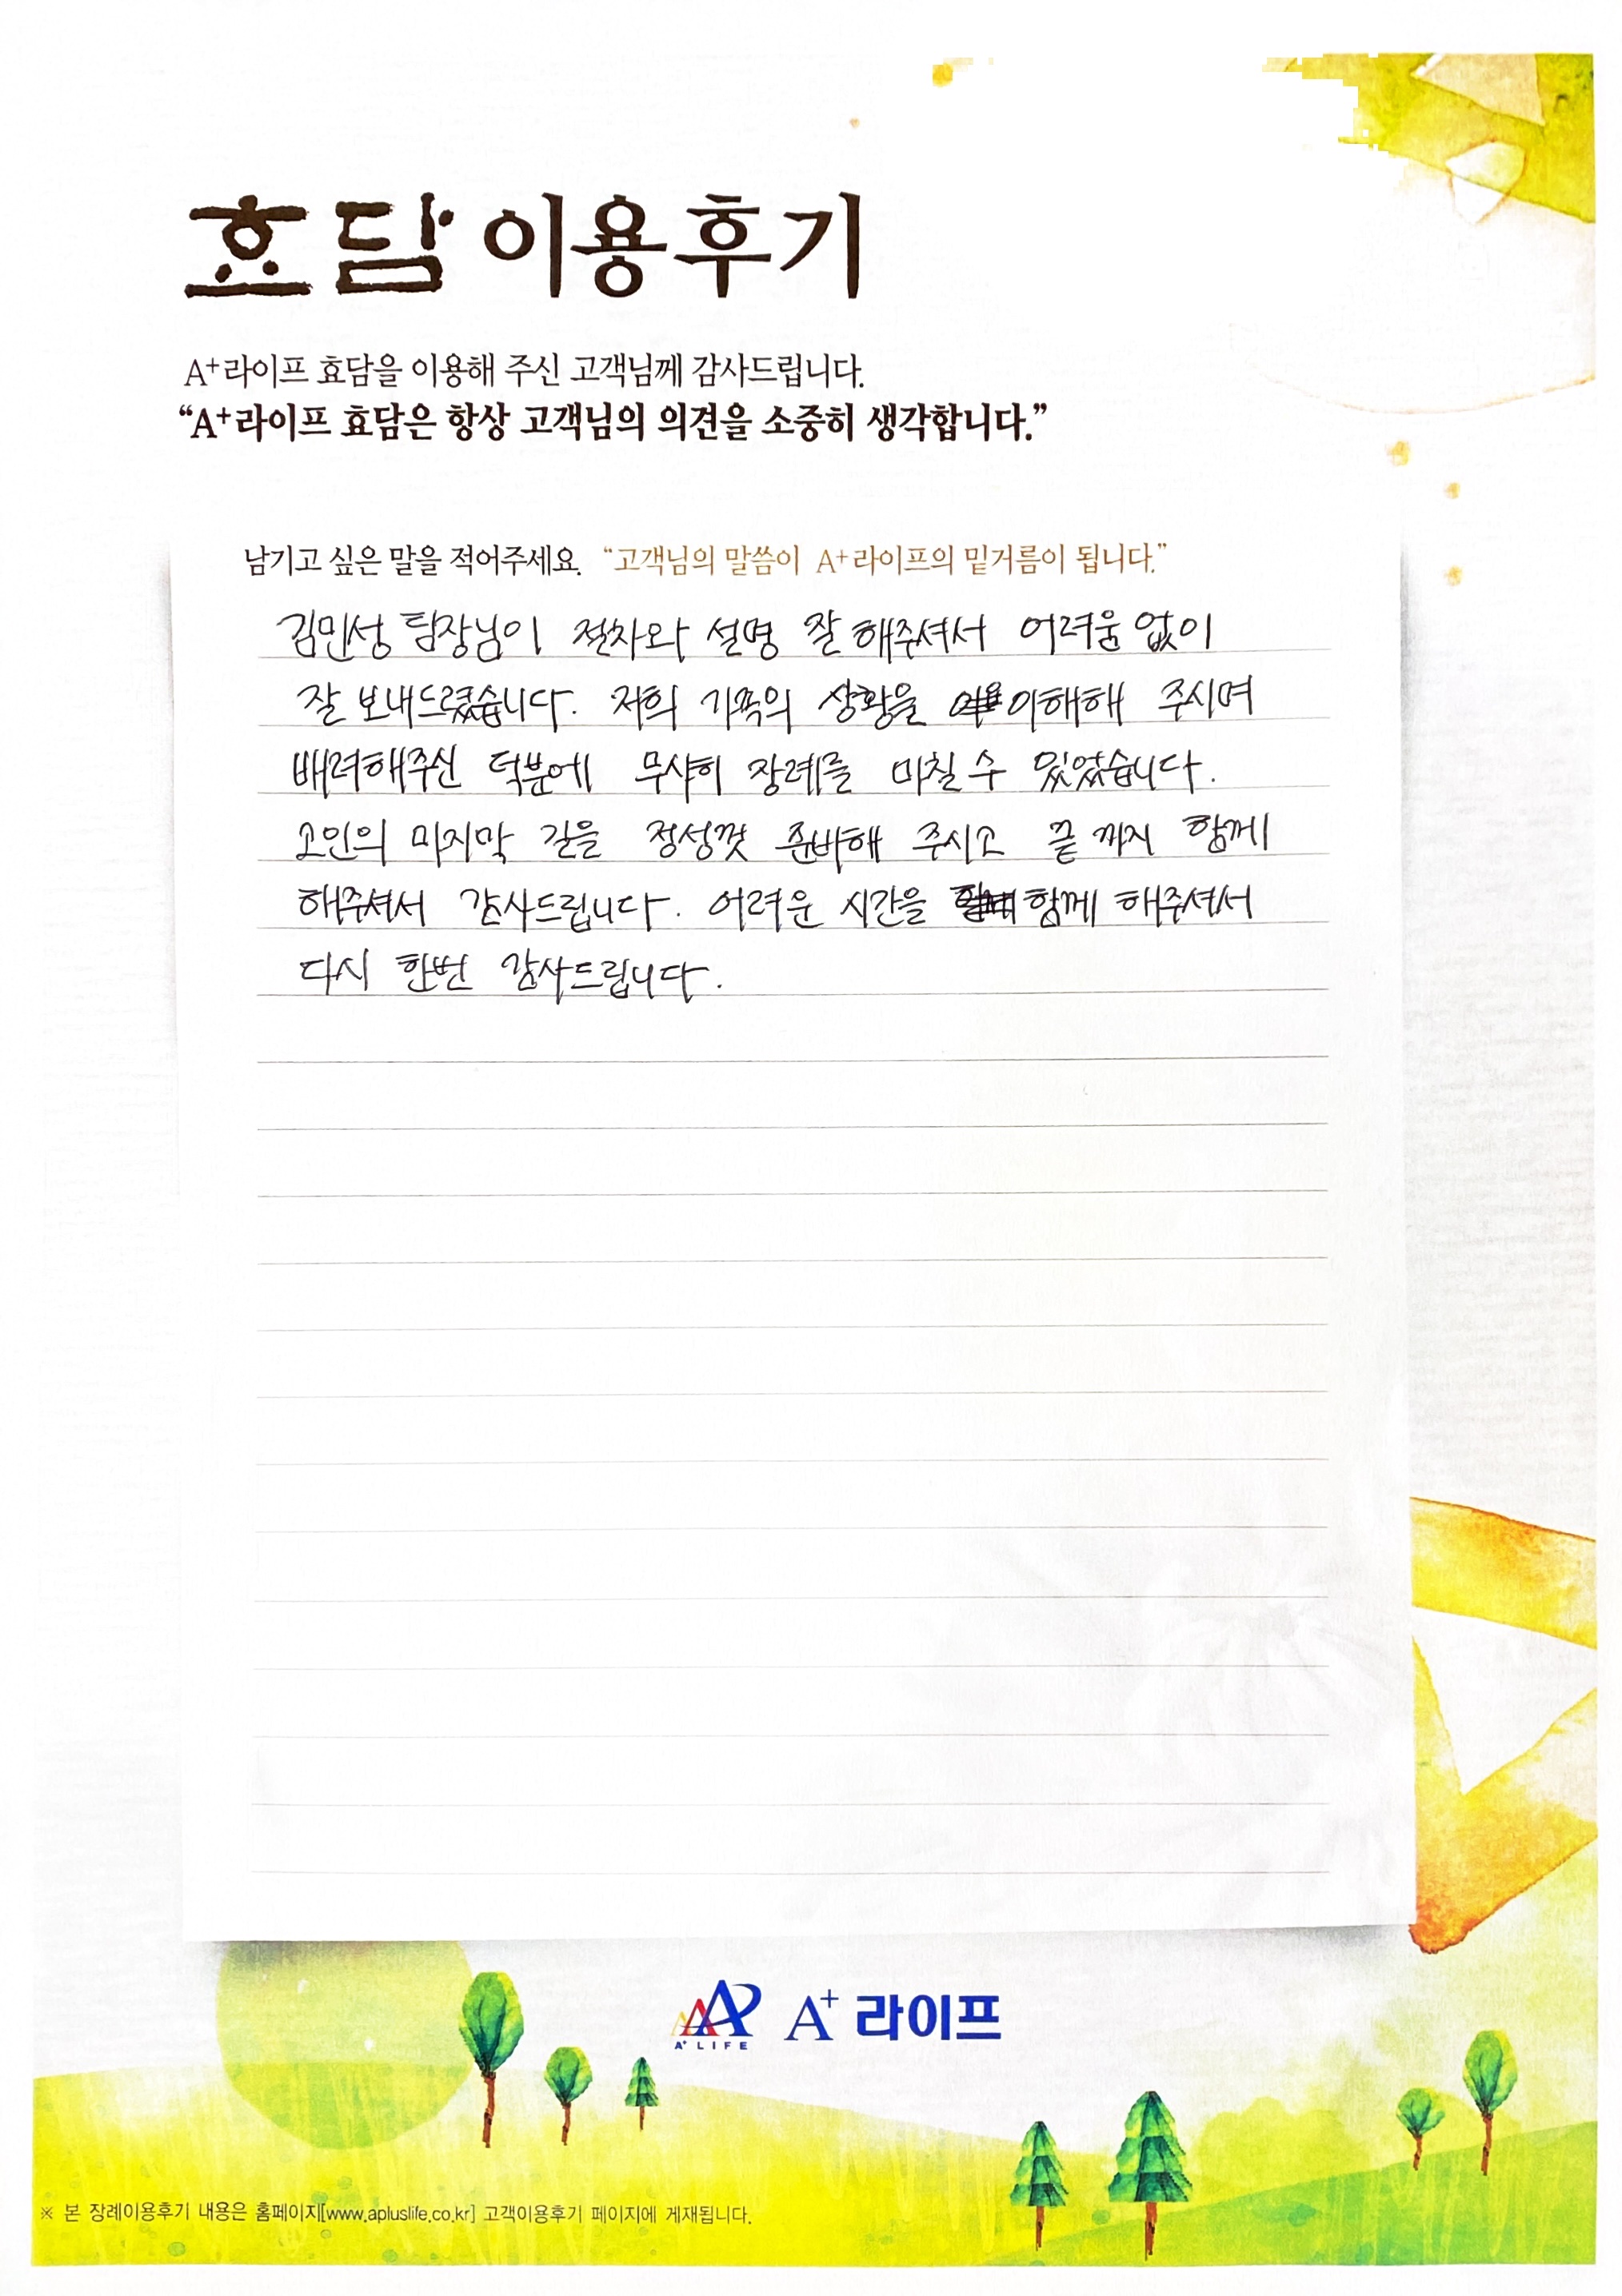 효담 이용후기
A⁺라이프 효담을 이용해 주신 고객님께 감사드립니다.
“A⁺라이프 효담은 항상 고객님의 의견을 소중히 생각합니다.”
남기고 싶은 말을 적어주세요. “고객님의 말씀이 A⁺라이프의 밑거름이 됩니다.”
김민성 팀장님이 절차와 설명 잘 해주셔서 어려움 없이
잘 보내드렸습니다. 저희 가족의 상황을 이해해 주시며
배려해주신 덕분에 무사히 장례를 마칠 수 있었습니다.
고인의 마지막 길을 정성껏 준비해 주시고 끝 까지 함께
해주셔서 감사드립니다. 어려운 시간을 함께 해주셔서
다시 한번 감사드립니다.
A⁺ LIFE A⁺ 라이프
※ 본 장례이용후기 내용은 홈페이지[www.apluslife.co.kr] 고객이용후기 페이지에 게재됩니다.